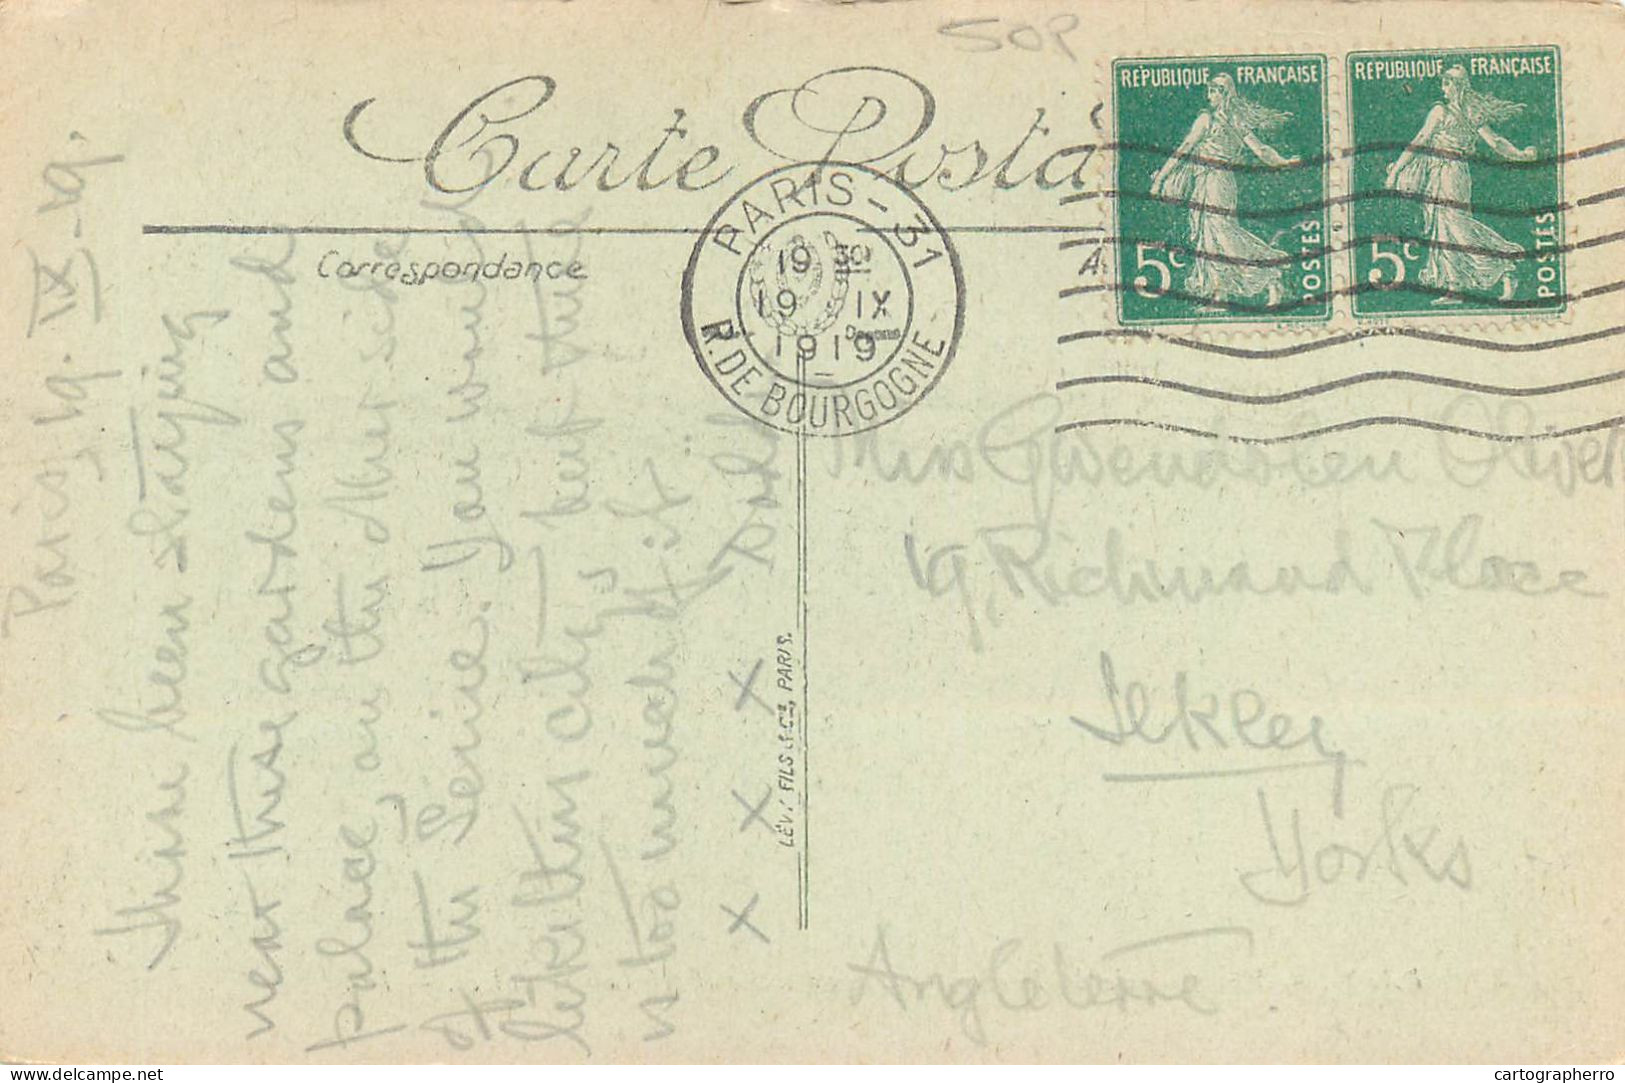 50P
Carte Posta
RÉPUBLIQUE FRANÇAISE
5c
POSTES
RÉPUBLIQUE FRANÇAISE
5c
POSTES
PARIS-31
19 30
19 IX
1919
R. DE BOURGOGNE
Correspondance
Paris, 19. IX-19.
have been staying
near these gardens and
palace, on the other side
of the Seine. You would
like this city, but there
is too much of it
Miss Gwendolen
19, Richmond Place
Ilkley
Yorks
Angleterre
X X X
LÉVY FILS & CIE, PARIS.
cartographerro